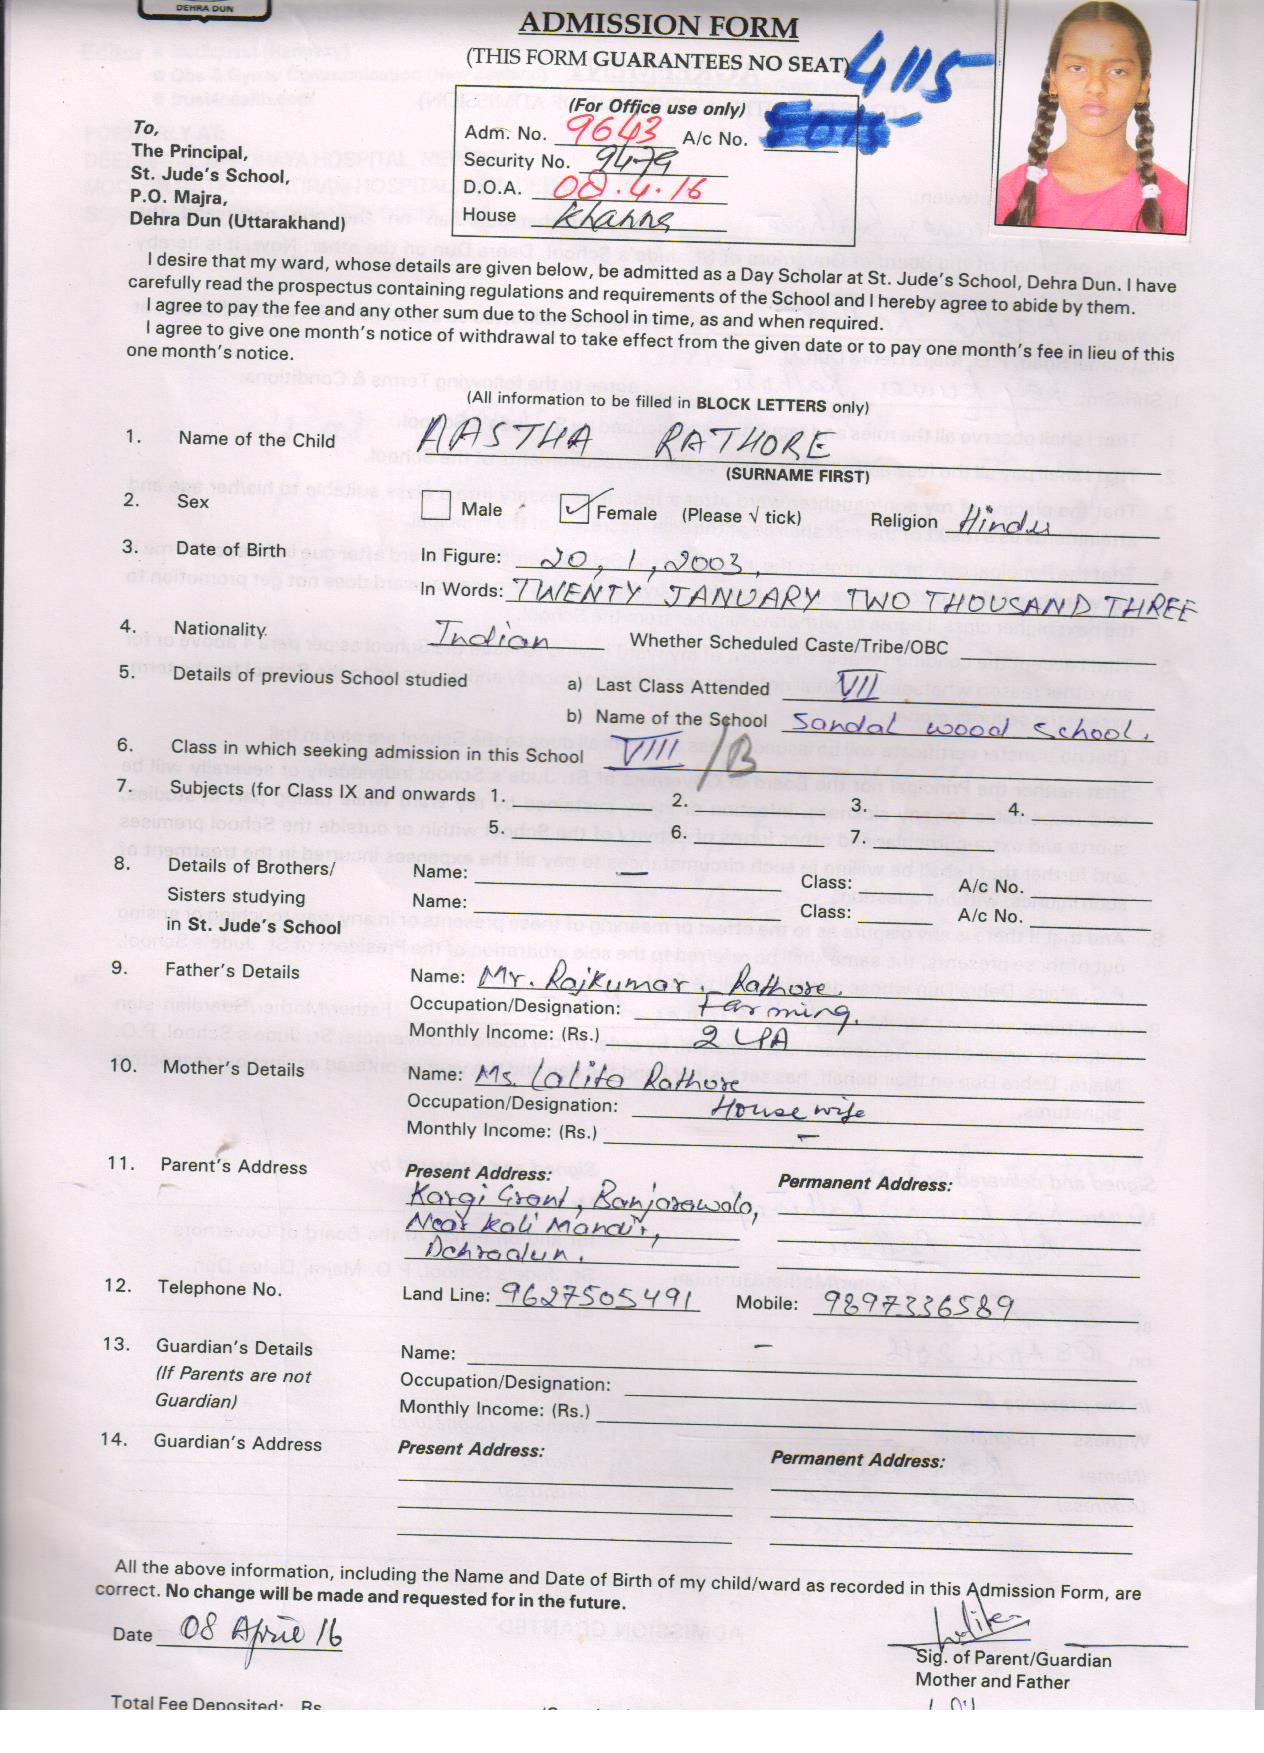 DEHRA DUN
ADMISSION FORM
(THIS FORM GUARANTEES NO SEAT)
4115
(For Office use only)
Adm. No. 9643 A/c No.
Security No. 9479
D.O.A. 08.4.16
House Khanna
To,
The Principal,
St. Jude's School,
P.O. Majra,
Dehra Dun (Uttarakhand)
I desire that my ward, whose details are given below, be admitted as a Day Scholar at St. Jude's School, Dehra Dun. I have
carefully read the prospectus containing regulations and requirements of the School and I hereby agree to abide by them.
I agree to pay the fee and any other sum due to the School in time, as and when required.
I agree to give one month's notice of withdrawal to take effect from the given date or to pay one month's fee in lieu of this
one month's notice.
(All information to be filled in BLOCK LETTERS only)
1. Name of the Child AASTHA RATHORE
(SURNAME FIRST)
2. Sex Male Female (Please √ tick) Religion Hindu
3. Date of Birth In Figure: 20, 1, 2003,
In Words: TWENTY JANUARY TWO THOUSAND THREE
4. Nationality. Indian Whether Scheduled Caste/Tribe/OBC
5. Details of previous School studied a) Last Class Attended VII
b) Name of the School Sandal woood School.
6. Class in which seeking admission in this School VIII /B
7. Subjects (for Class IX and onwards 1. 2. 3. 4.
5. 6. 7.
8. Details of Brothers/ Name: — Class: A/c No.
Sisters studying Name: Class: A/c No.
in St. Jude's School
9. Father's Details Name: Mr. Rajkumar. Rathore.
Occupation/Designation: Farming.
Monthly Income: (Rs.) 2 LPA
10. Mother's Details Name: Ms. Lalita Rathore
Occupation/Designation: House wife
Monthly Income: (Rs.) –
11. Parent's Address Present Address: Permanent Address:
Kargi Grant, Banjarawala,
Near Kali Mandir,
Dehradun.
12. Telephone No. Land Line: 9627505491 Mobile: 9897336589
13. Guardian's Details Name: –
(If Parents are not Occupation/Designation:
Guardian) Monthly Income: (Rs.)
14. Guardian's Address Present Address: Permanent Address:
All the above information, including the Name and Date of Birth of my child/ward as recorded in this Admission Form, are
correct. No change will be made and requested for in the future.
Date 08 April 16
Sig. of Parent/Guardian
Mother and Father
Total Fee Deposited: Rs.